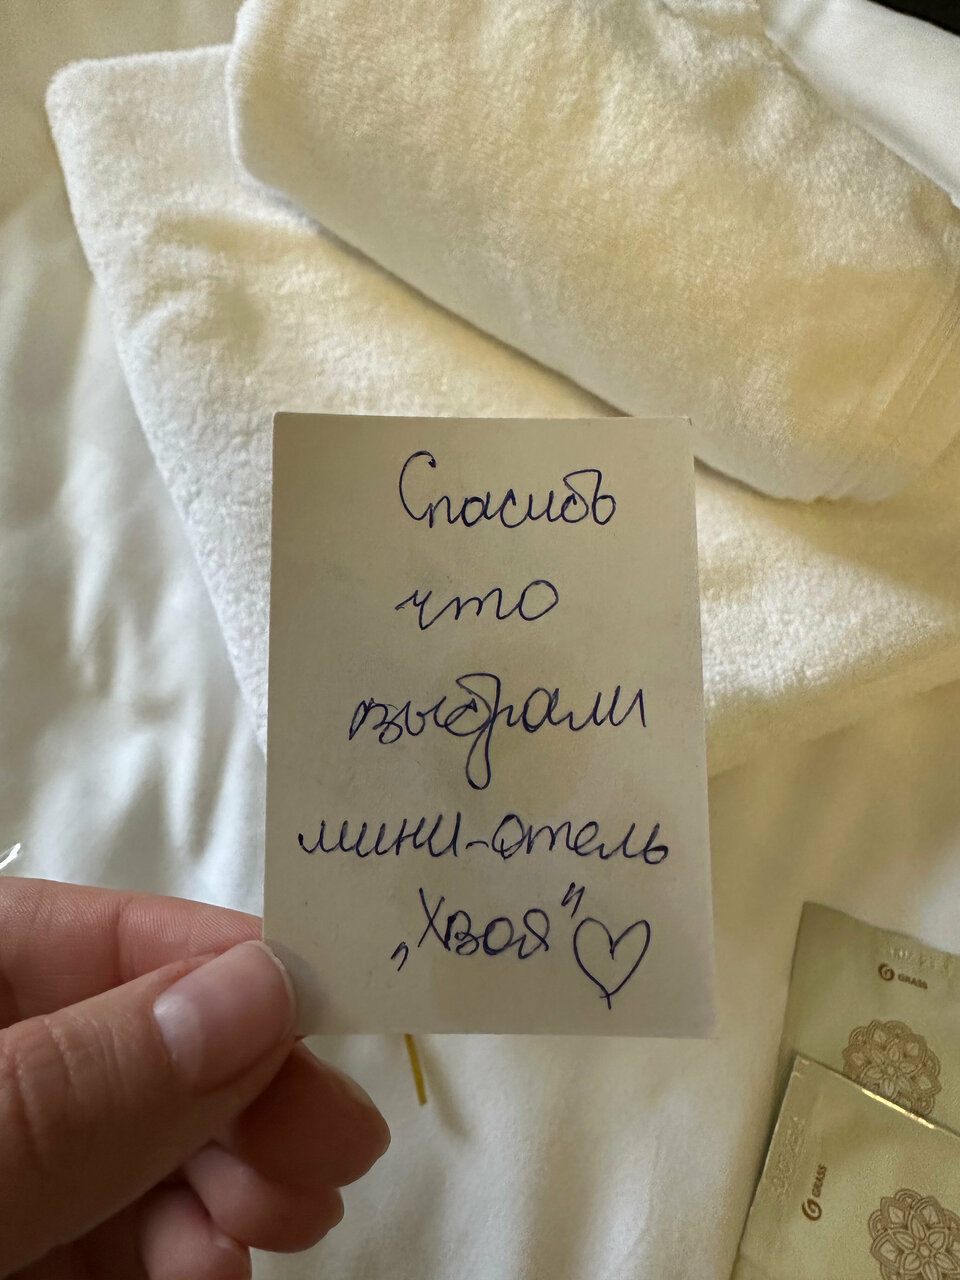 Спасибо
что
выбрали
мини-отель
„Хвоя" ♡
GRASS
GRASS